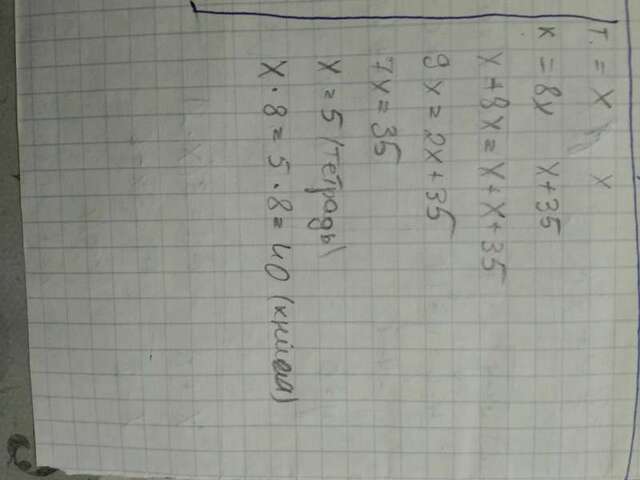 Т. = X X
К = 8X X+35
X+8X=X+X+35
9X=2X+35
7X=35
X=5 (тетрадь)
X·8=5·8=40 (книга)